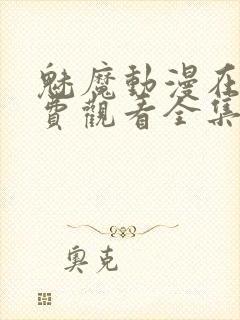 魅魔動漫在
費觀看全集
奧克